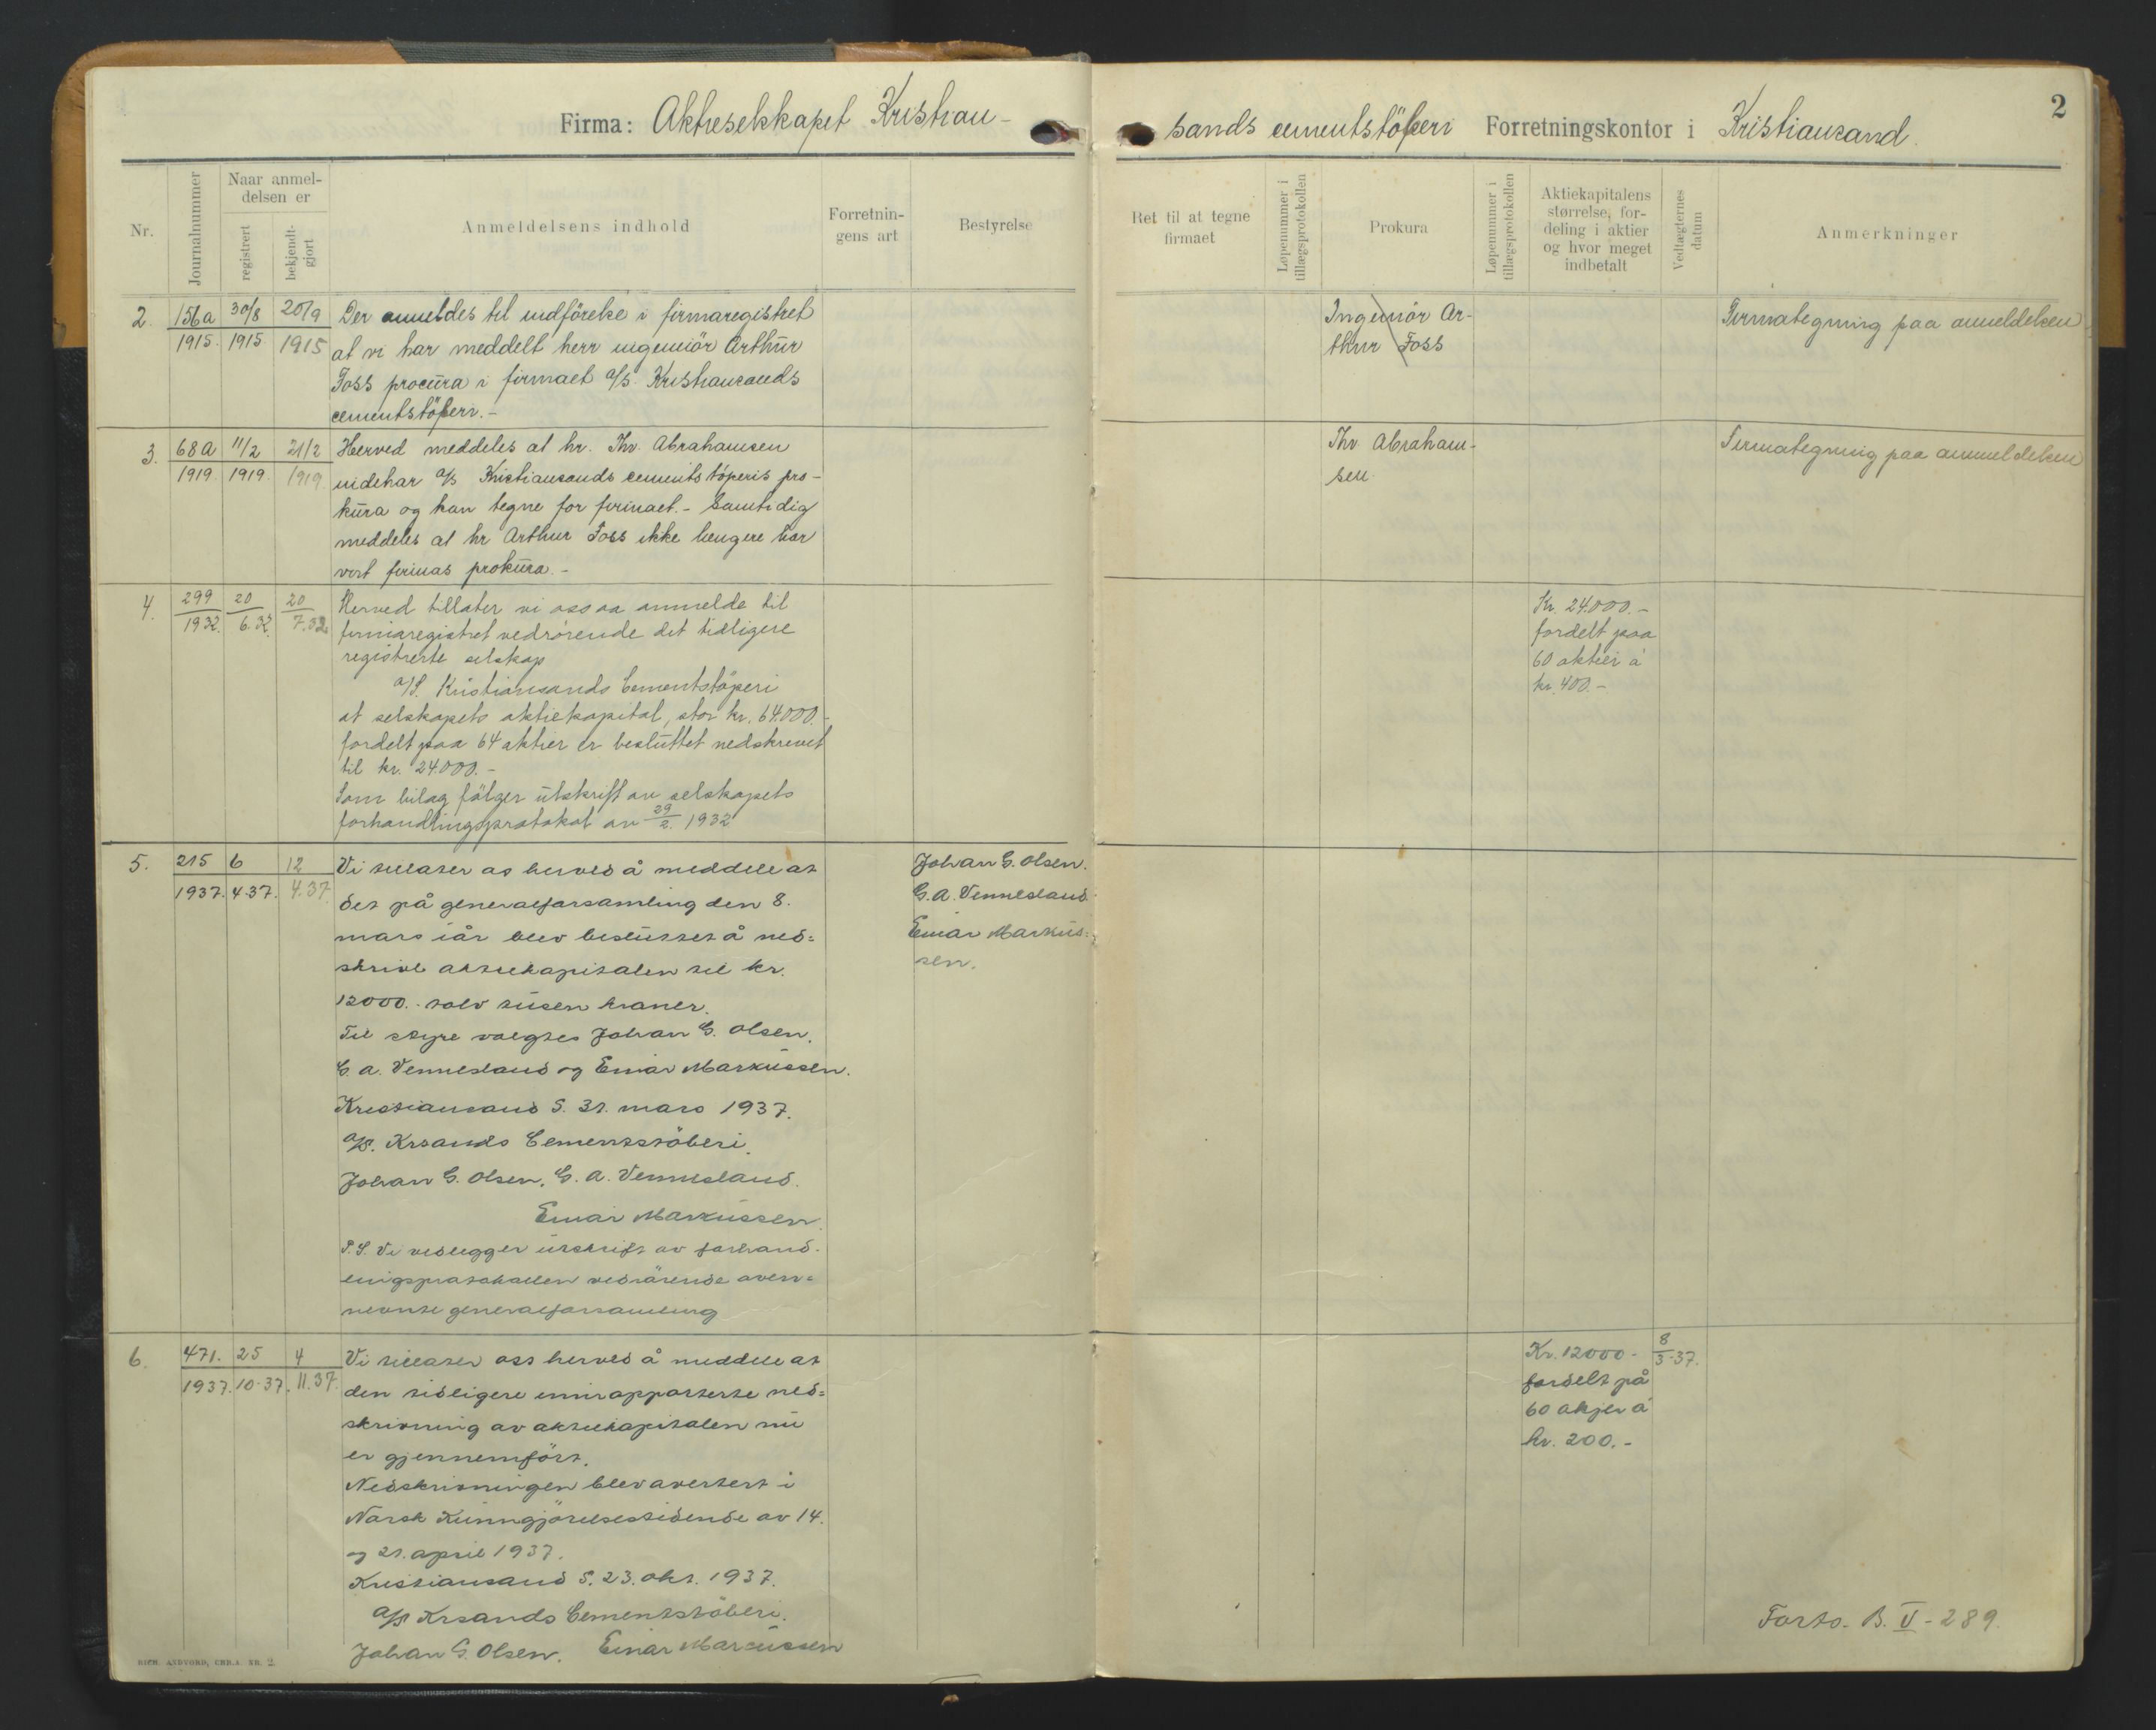 Firma: Aktieselskapet Kristian-
sands cementstöberi Forretningskontor i Kristiansand.
2
Nr.
Journalnummer
Naar anmel-
delsen er
registrert
bekjendt-
gjort
Anmeldelsens indhold
Forretnin-
gens art
Bestyrelse
Ret til at tegne
firmaet
Løpenummer i
tillægsprotokollen
Prokura
Løpenummer i
tillægsprotokollen
Aktiekapitalens
størrelse, for-
deling i aktier
og hvor meget
indbetalt
Vedtægternes
datum
Anmerkninger
2. 156a 30/8 20/9
1915. 1915 1915
Der anmeldes til indförelse i firmaregistret
at vi har meddelt herr ingeniör Arthur
Foss procura i firmaet a/s. Kristiansands
cementstöberi.-
Ingeniör Ar-
thur Foss
Firmategning paa anmeldelsen
3. 68a 11/2 21/2
1919. 1919. 1919.
Herved meddeles at hr. Thv. Abrahamsen
indehar a/s Kristiansands cementstöperis pro-
kura og kan tegne for firmaet.- Samtidig
meddeles at hr Arthur Foss ikke lengere har
vort firmas prokura.-
Thv Abraham-
sen
Firmategning paa anmeldelsen
4. 299 20 20
1932. 6.32. 7.32.
Herved tillater vi oss aa anmelde til
firmaregistret vedrörende det tidligere
registrerte selskap
a/S. Kristiansands Cementstöperi
at selskapets aktiekapital, stor kr. 64.000.-
fordelt paa 64 aktier er besluttet nedskrevet
til kr. 24.000.-
Som bilag fölger utskrift av selskapets
forhandlingsprotokol av 29/2. 1932
Kr. 24.000.-
fordelt paa
60 aktier á
kr. 400.-
5. 215 6 12
1937. 4.37. 4.37.
Vi tillater os herved å meddele at
det på generalforsamling den 8.
mars iår blev besluttet å ned=
skrive aktiekapitalen til kr.
12000.- tolv tusen kroner.
Til styre valgtes Johan G. Olsen.
G. A. Vennesland og Einar Markussen.
Kristiansand S. 31. mars 1937.
a/s. Krsands Cementstöberi.
Johan G. Olsen. G. A. Vennesland.
Einar Markussen.
P.S. Vi vedlegger utskrift av forhand-
lingsprotokollen vedrörende oven=
nevnte generalforsamling
Johan G. Olsen.
G. A. Vennesland.
Einar Markus=
sen.
6. 471. 25 4
1937. 10.37. 11.37.
Vi tillater oss herved å meddele at
den tidligere innrapporterte ned=
skrivning av aktiekapitalen nu
er gjennemfört.
Nedskrivningen blev avertert i
Norsk Kunngjörelsestidende av 14.
og 21. april 1937.
Kristiansand S. 23. okt. 1937.
a/s Krsands Cementstöberi.
Johan G. Olsen. Einar Marcussen
Kr. 12000.-
fordelt på
60 aksjer á
kr. 200.-
8/3-37.
Forts. B. V - 289.
RICH. ANDVORD, CHR.A. NR. 2